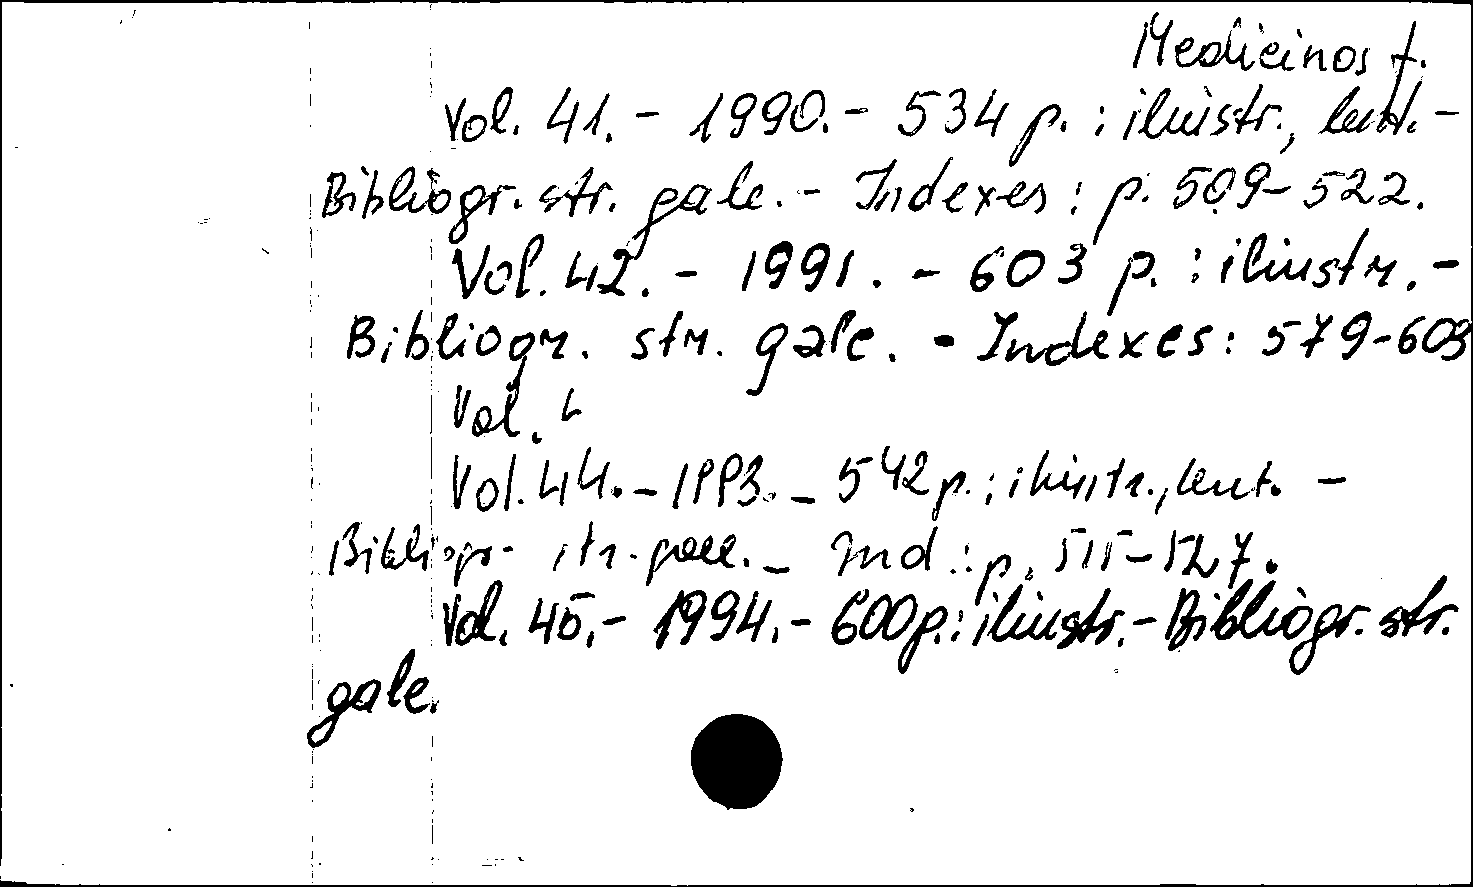 Medicinos f.
Vol. 41. - 1990. - 534 p. : iliustr., lent. -
Bibliogr. str. gale. - Indexes : p. 509-522.
Vol. 42. - 1991. - 603 p. : iliustr. -
Bibliogr. str. gale. - Indexes : 579-603
Vol. 4
Vol. 44. - 1993. - 542 p. : iliustr., lent. -
Bibliogr. str. gale. - Ind. : p. 515-527.
Vol. 45. - 1994. - 600 p. : iliustr. - Bibliogr. str.
gale.